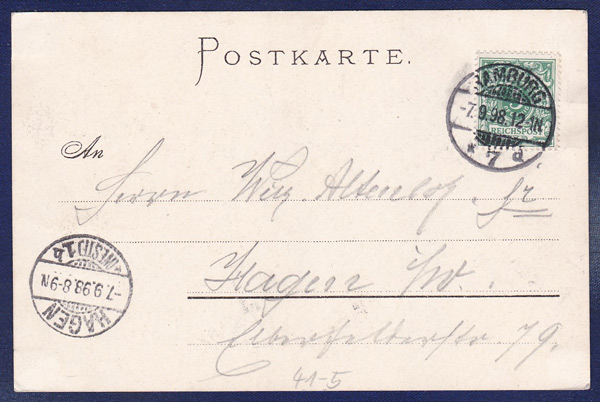 POSTKARTE.
HAMBURG
-7.9.98.12-1N
REICHSPOST
* 7 d
An
Herrn Wilh. Altenloh Jr
Hagen i/W.
Elberfelderstr. 79.
(WESTF.) 1 *
-7.9.98.8-9N.
HAGEN
41-5